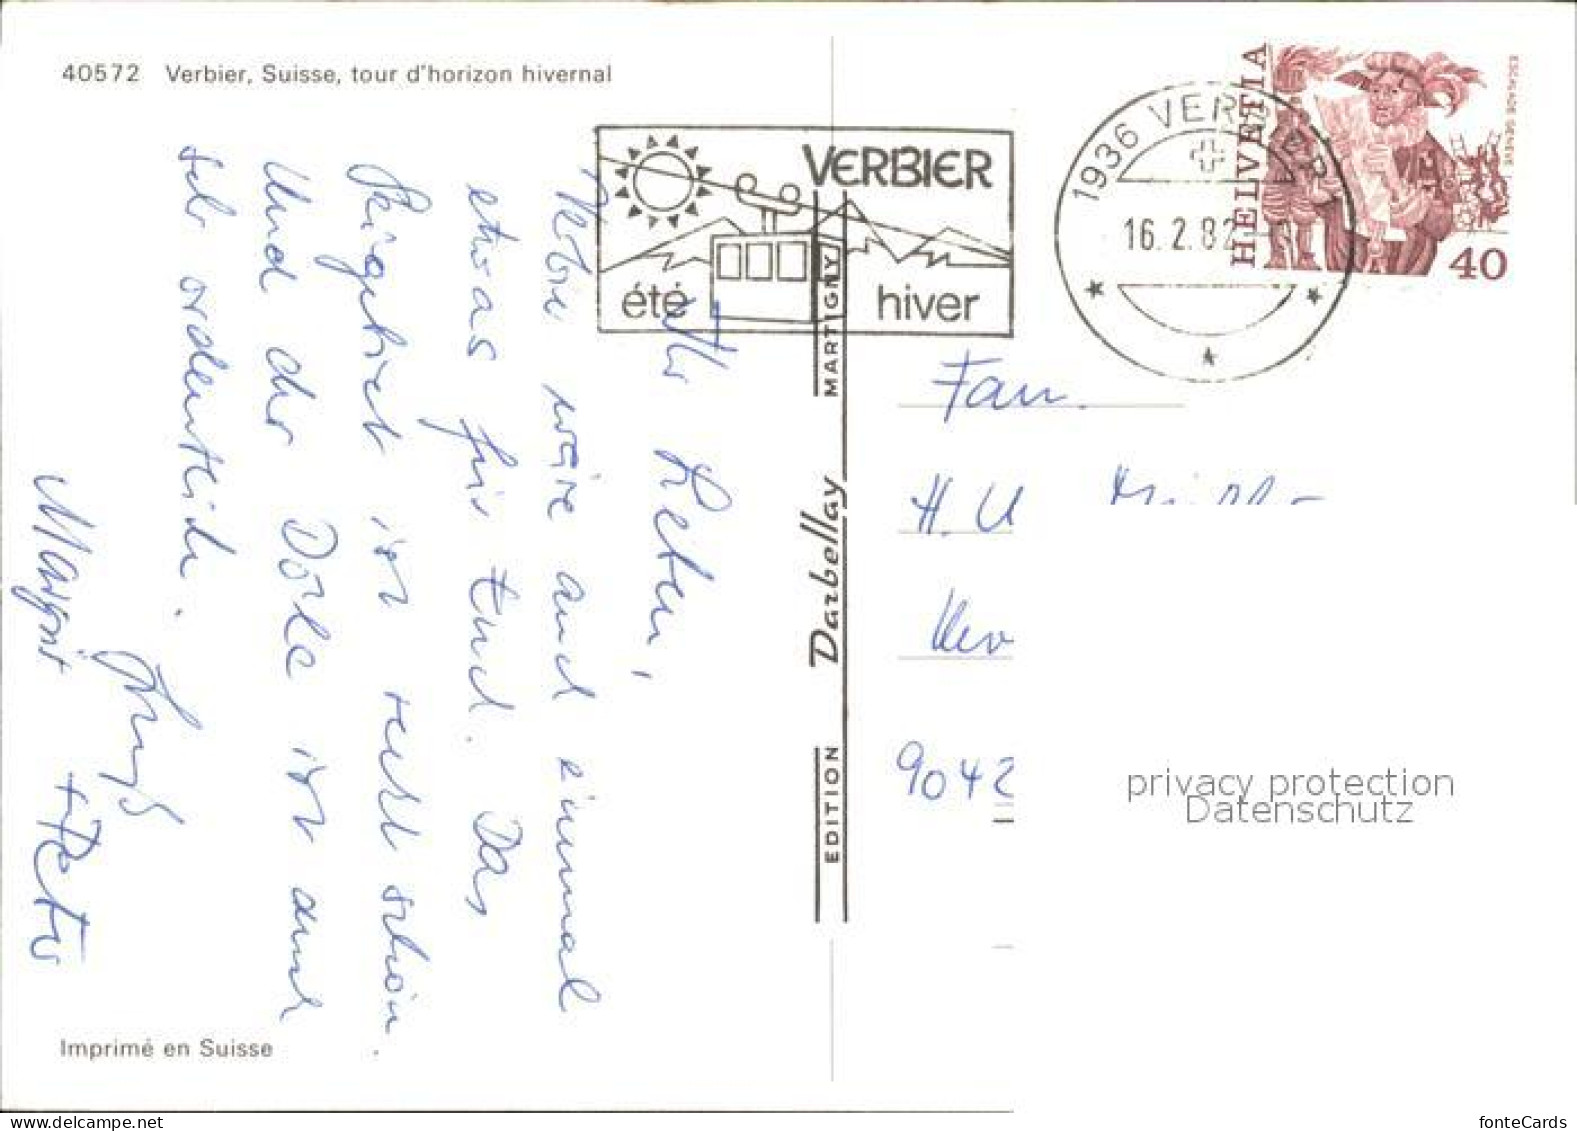 40572 Verbier, Suisse, tour d'horizon hivernal
VERBIER
été hiver
1936 VERBIER
16.2.82
HELVETIA
ESCALADE GENÈVE
40
Ihr Lieben,
wäre auch einmal
etwas für Euch. Das
Skigebiet ist recht schön.
Und der Dôle ist auch
sehr ordentlich.
Margrit + Peter
EDITION Darbellay MARTIGNY
Fam.
H. U
9042
privacy protection
Datenschutz
Imprimé en Suisse
fonteCards